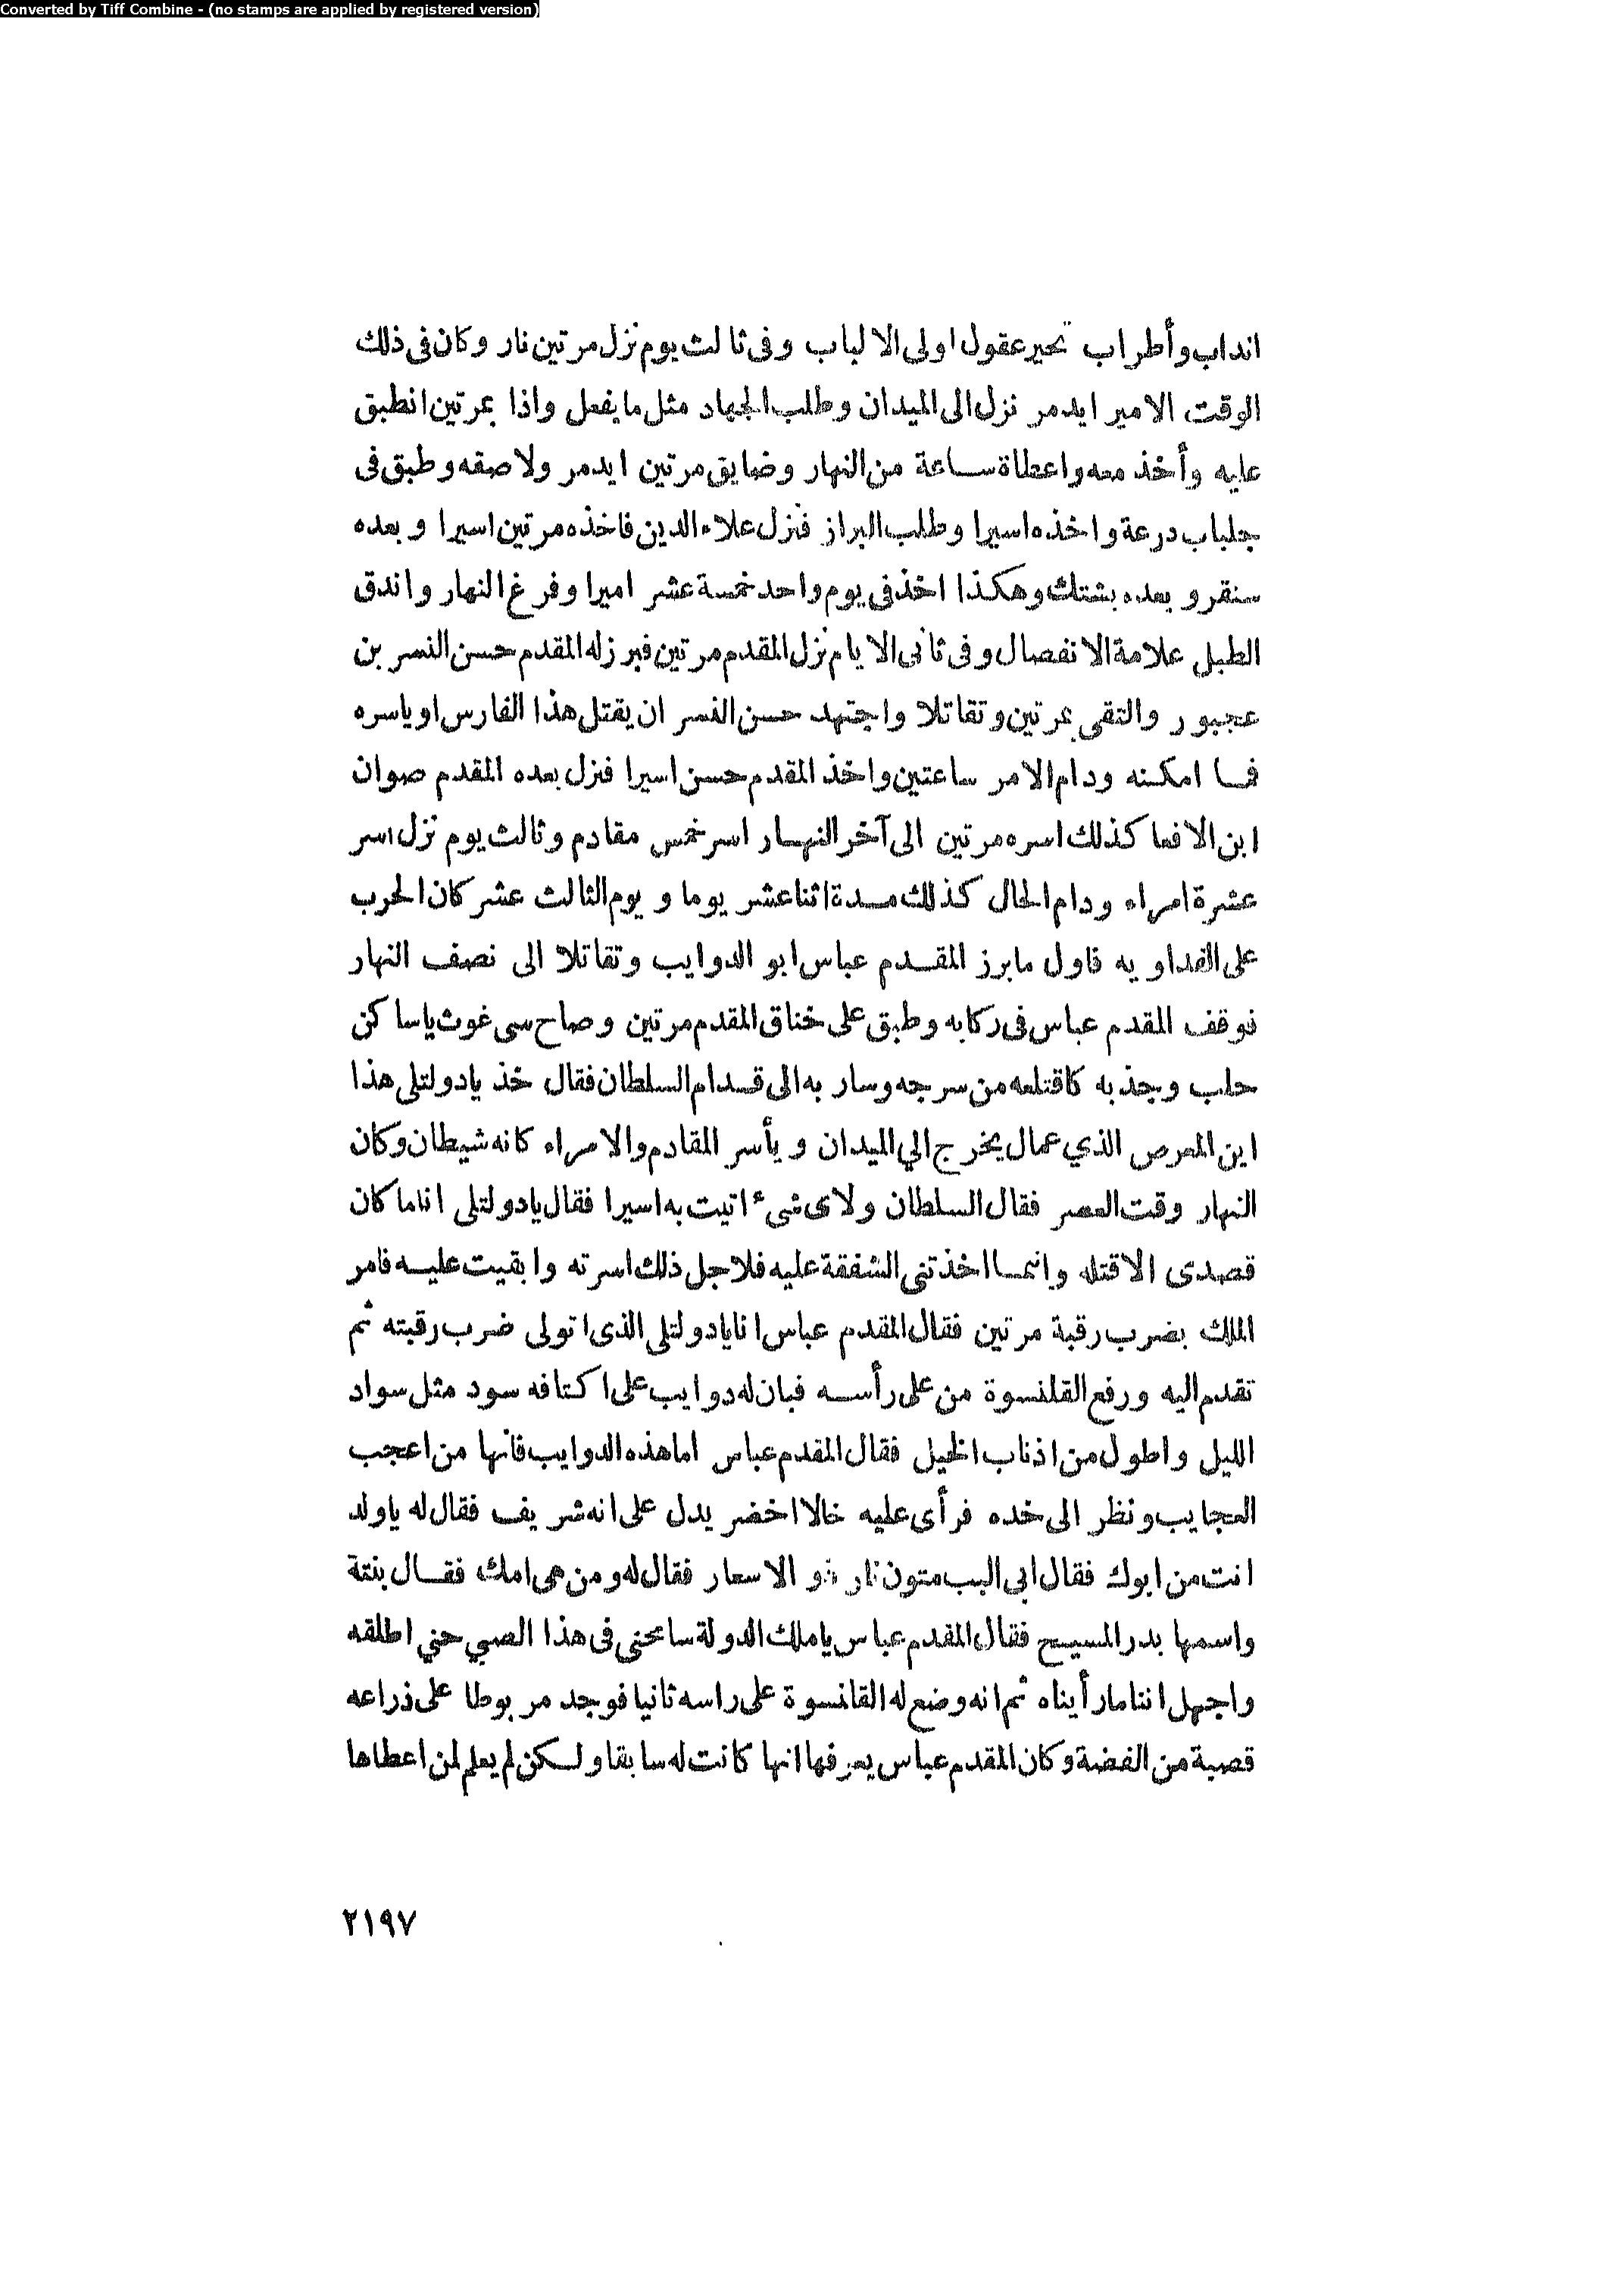 Converted by Tiff Combine - (no stamps are applied by registered version)
انداب وأطراب تحير عقول اولى الالباب وفى ثالث يوم نزل مرتين نار وكان فى ذلك
الوقت الامير ايدمر نزل الى الميدان وطلب الجهاد مثل ما يفعل واذا بمرتين انطبق
عليه وأخذ معه واعطاة ساعة من النهار وضايق مرتين ايدمر ولاصقه وطبق فى
جلباب درعة واخذه اسيرا وطلب البراز فنزل علاء الدين فاخذه مرتين اسيرا وبعده
سنقر وبعده بشتك وهكذا اخذ فى يوم واحد خمسة عشر اميرا وفرغ النهار واندق
الطبل علامة الانفصال وفى ثانى الايام نزل المقدم مرتين فبرز له المقدم حسن النسر بن
عجبور والتقى بمرتين وتقاتلا واجتهد حسن النسر ان يقتل هذا الفارس او ياسره
فما امكنه ودام الامر ساعتين واخذ المقدم حسن اسيرا فنزل بعده المقدم صوان
ابن الافعا كذلك اسره مرتين الى آخر النهار اسر خمس مقادم وثالث يوم نزل اسر
عشرة امراء ودام الحال كذلك مدة اثنا عشر يوما ويوم الثالث عشر كان الحرب
على الفداويه فاول ما برز المقدم عباس ابو الدوايب وتقاتلا الى نصف النهار
فوقف المقدم عباس فى ركابه وطبق على خناق المقدم مرتين وصاح سى غوث ياساكن
حلب وجذبه كاقتلعه من سرجه وسار به الى قدام السلطان فقال خذ يادولتلى هذا
اين المعرص الذي عمال يخرج الي الميدان ويأسر المقادم والامراء كانه شيطان وكان
النهار وقت العصر فقال السلطان ولاى شىء اتيت به اسيرا فقال يادولتلى اناما كان
قصدى الاقتله وانما اخذتنى الشفقة عليه فلاجل ذلك اسرته وابقيت عليه فامر
الملك بضرب رقبة مرتين فقال المقدم عباس انا يادولتلى الذى اتولى ضرب رقبته ثم
تقدم اليه ورفع القلنسوة من على رأسه فبان له دوايب على اكتافه سود مثل سواد
الليل واطول من اذناب الخيل فقال المقدم عباس اما هذه الدوايب فانها من اعجب
العجايب ونظر الى خده فرأى عليه خالا اخضر يدل على انه شريف فقال له ياولد
انت من ابوك فقال ابى البب متون نار ذو الاسعار فقال له ومن هى امك فقال بنتة
واسمها بدر المسيح فقال المقدم عباس ياملك الدولة سامحنى فى هذا الصبي حتي اطلقه
واجهل اننا مارأيناه ثم انه وضع له القانسوة على راسه ثانيا فوجد مربوطا على ذراعه
قصبة من الفضة وكان المقدم عباس يعرفها انها كانت له سابقا ولكن لم يعلم لمن اعطاها
٢١٩٧